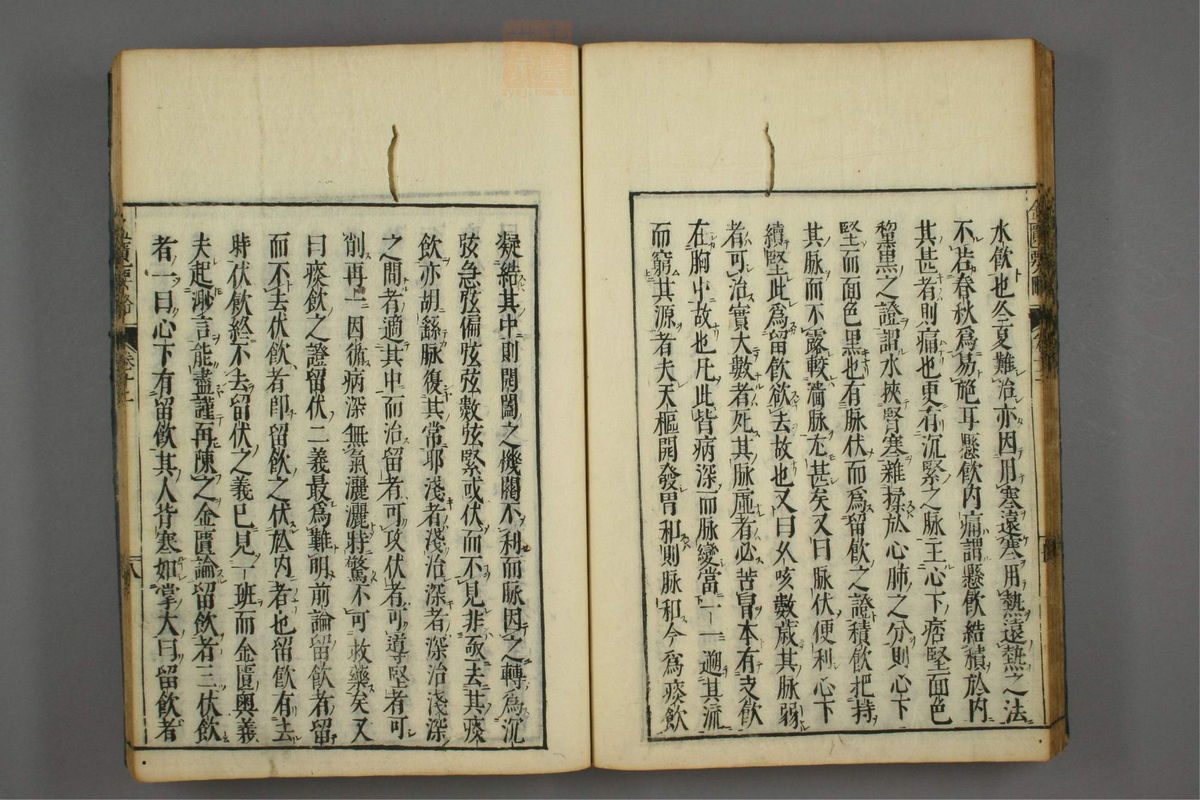 水飲也冬夏難治亦因用寒遠寒用熱遠熱之法
不若春秋爲易施耳懸飲内痛謂懸飲結積於内
其甚者則痛也更有沉緊之脉主心下痞堅面色
黧黒之證謂水挾腎寒雜揉於心肺之分則心下
堅而面色黒也有脉伏而爲留飲之證積飲把持
其脉而不露較濇脉尤甚矣又曰脉伏便利心下
續堅此爲留飲欲去故也又曰久咳數歳其脉弱
者可治實大數者死其脉虛者必苦冒本有支飲
在胸中故也凡此皆病深而脉變當一一遡其流
而窮其源者夫天樞開發胃和則脉和今爲痰飲
凝結其中則開闔之機關不利而脉因之轉爲沉
弦急弦偏弦弦數弦緊或伏而不見非亟去其痰
飲亦胡繇脉復其常耶淺者淺治深者深治淺深
之間者適其中而治留者可攻伏者可導堅者可
削再一因循病深無氣灑灑時驚不可救藥矣又
曰痰飲之證留伏二義最爲難明前論留飲者留
而不去伏飲者即留飲之伏於内者也留飲有去
時伏飲終不去留伏之義已見一班而金匱奧義
夫豈渺言能盡謹再陳之金匱論留飲者三伏飲
者一曰心下有留飲其人背寒如掌大曰留飲者
金匱要略
卷十二
八